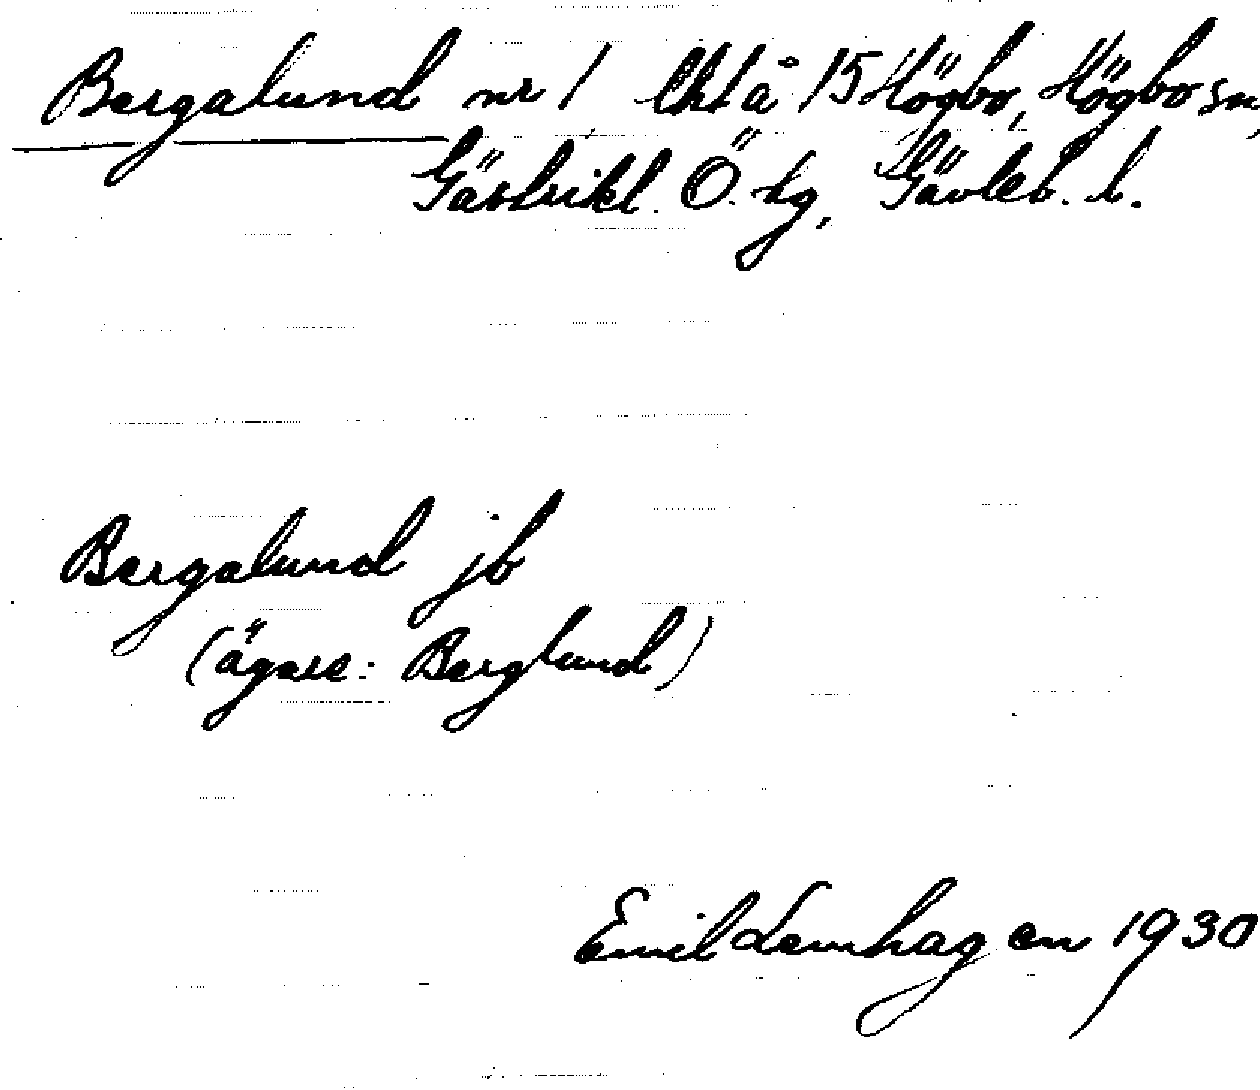 Bergalund nr 1 lht å 15 Högbo, Högbo sn,
Gästrikl. Ö. tg, Gävleb. l.
Bergalund jb
(ägare: Berglund)
Emil Lemhagen 1930